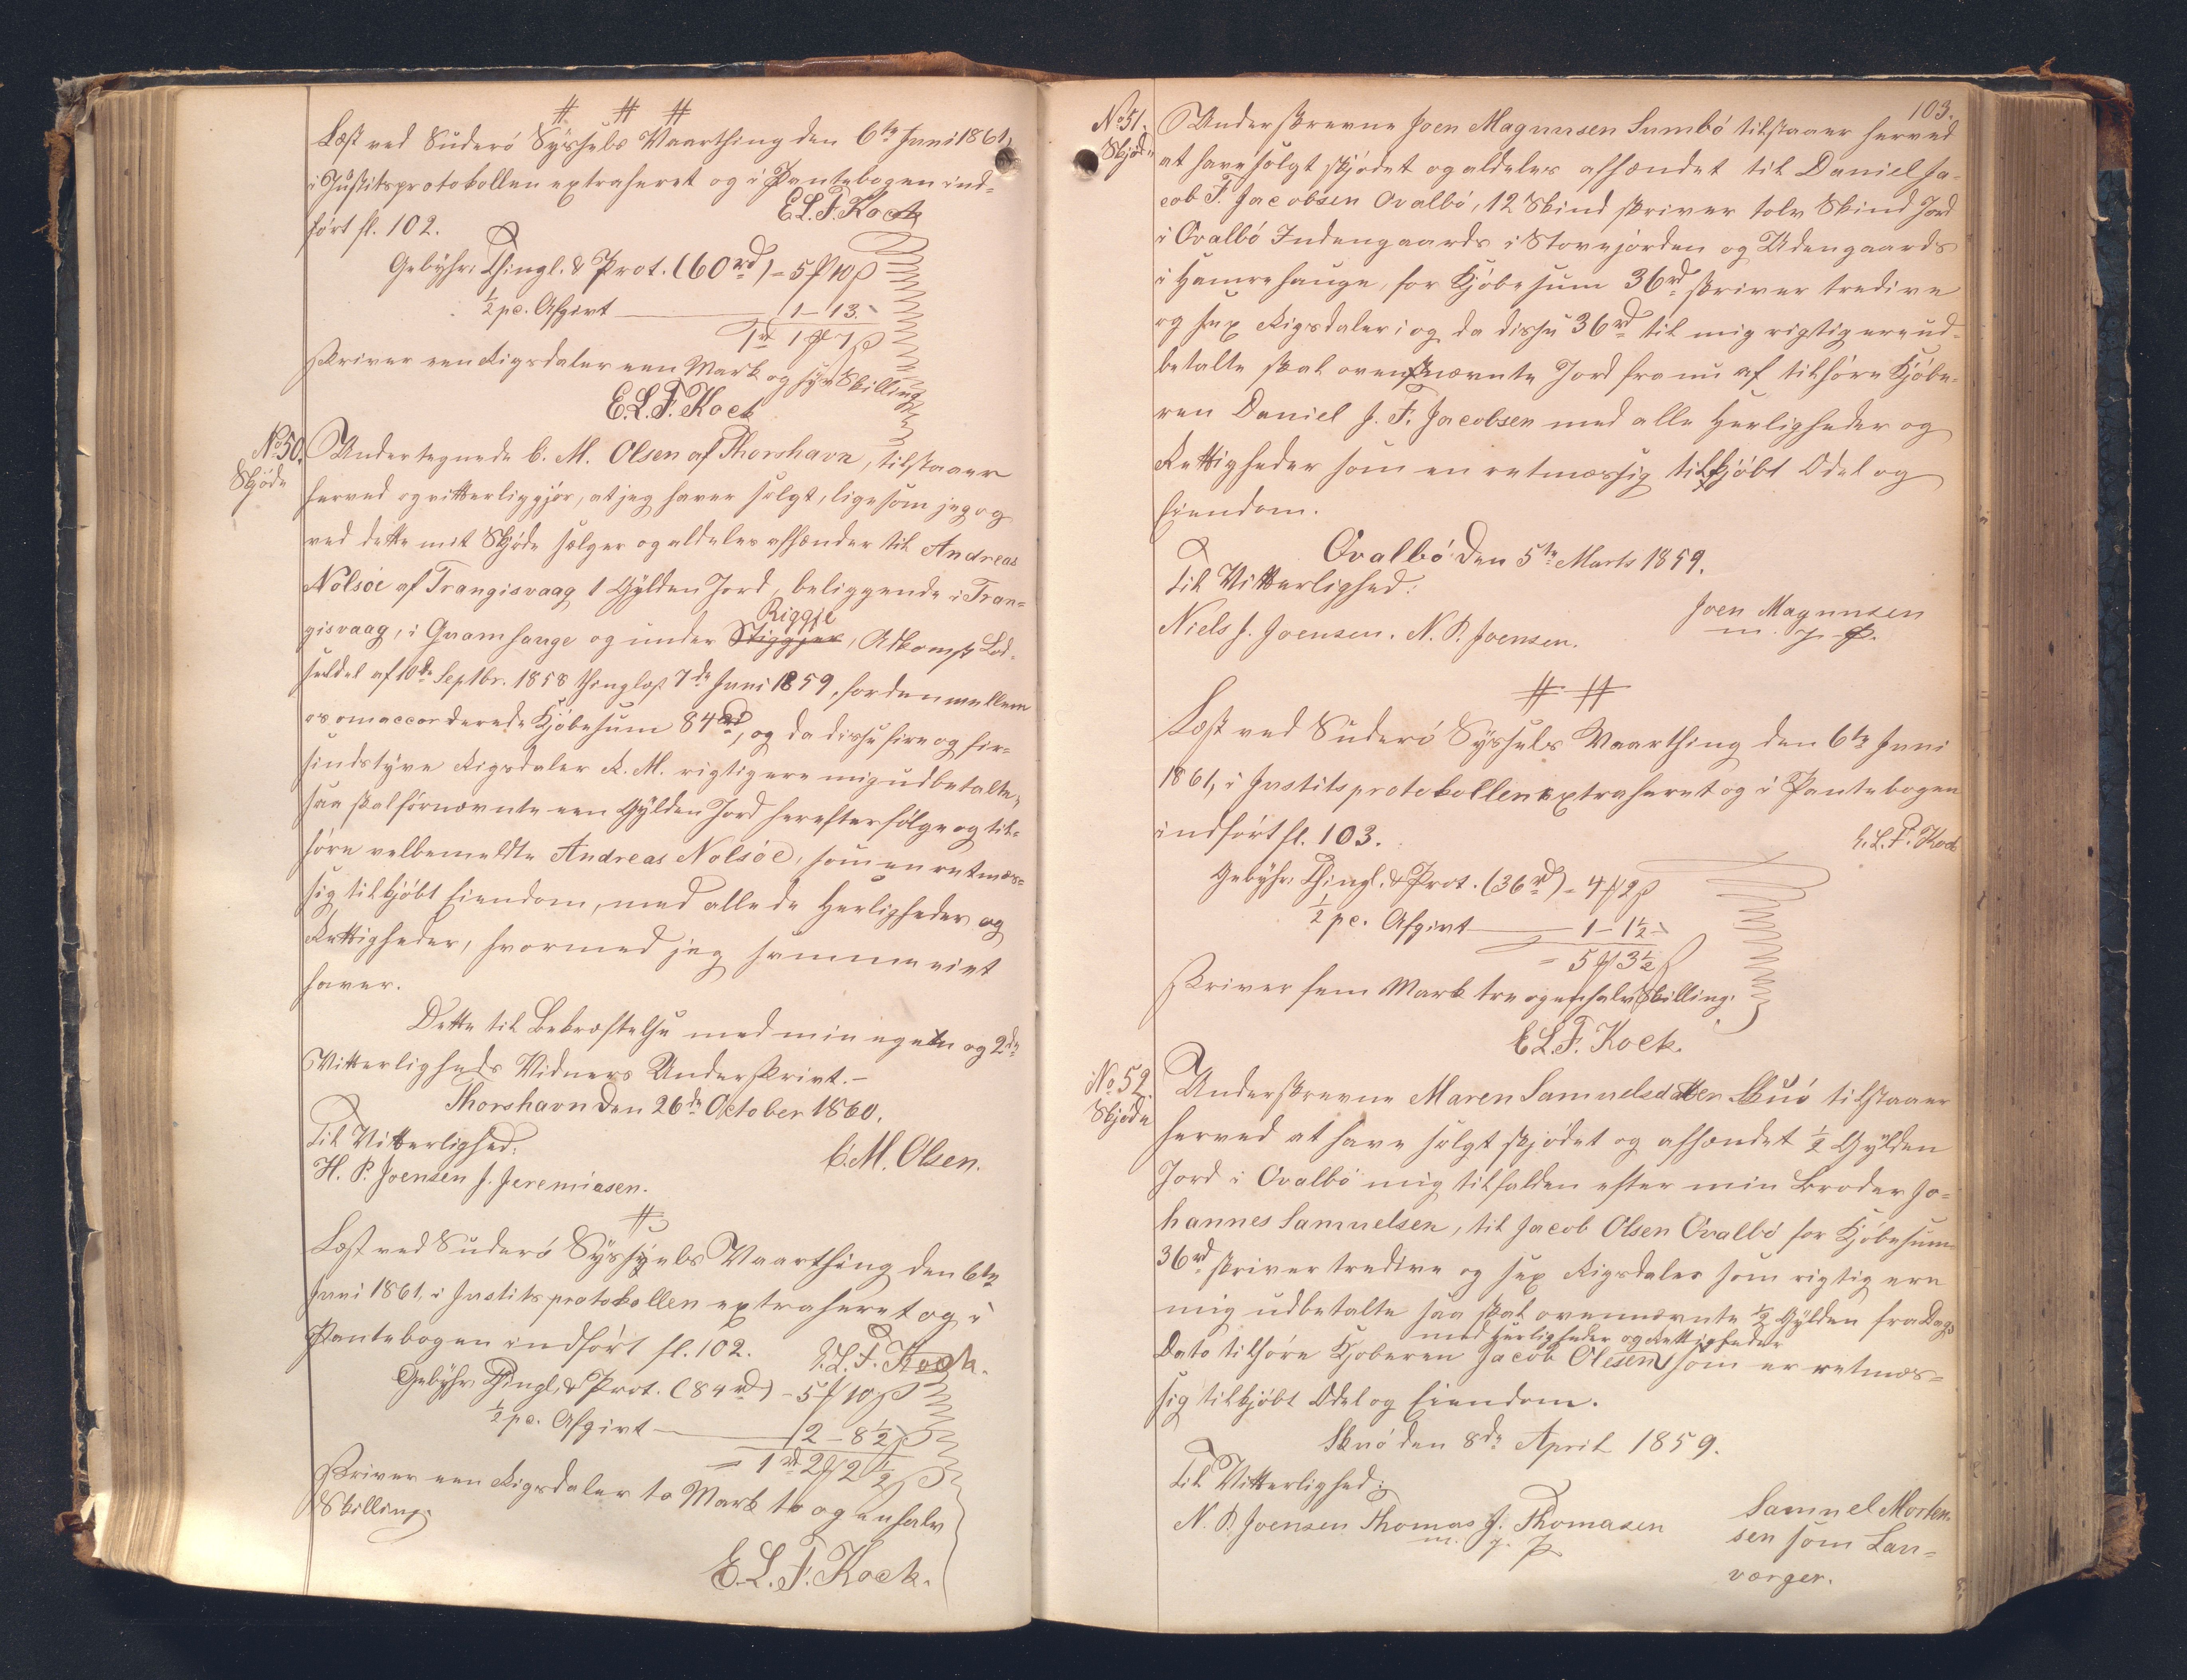 # # #
Læst ved Suderö Sÿssels Vaarthing den 6te Juni 1861,
i Justitsprotokollen extraheret og i Pantebogen ind-
ført fl. 102.
E.L.F. Kock
Gebÿhr: Thingl. & Prot. (60 rd) - 5 ₰ 10 β
½ pc. Afgivt 1 - 13. -
1 rd 1 ₰ 7 β
skriver een Rigsdaler een Mark og sÿv Skilling
E.L.F. Kock
No 50.
Skjöde
Undertegnede C. M. Olsen af Thorshavn, tilstaaer
herved og vitterliggjör, at jeg haver solgt, ligesom jeg og
ved dette mit Skjöde sælger og aldeles afhænder til Andreas
Nolsöe af Trangisvaag 1 Gÿlden Jord, beliggende i Tran-
Riggje
gisvaag, i Gvamhauge og under Stiggjer, Adkomst Lod-
seddel af 10de Septbr. 1858 thinglæst 7de Juni 1859, for den mellem
os omaccorderede Kjöbesum 84 rd, og da disse fire og fir-
sindstÿve Rigsdaler R. M. rigtig ere mig udbetalte,
saa skal förnævnte een Gÿlden Jord herefter fölge og til-
höre velbemeldte Andreas Nolsöe, som en retmæs-
sig tilkjöbt Eiendom, med alle de Herligheder og
Rettigheder, hvormed jeg samme eiet
haver.
Dette til Bekræftelse med min egen og 2de
Vitterligheds Vidners Underskrivt. -
Thorshavn den 26de October 1860.
Til Vitterlighed:
C. M. Olsen.
H. P. Joensen J. Jeremiasen.
#
Læst ved Suderö Sÿssels Vaarthing den 6te
Juni 1861, i Justitsprotokollen extraheret og i
Pantebogen indfört fl. 102.
E.L.F. Kock.
Gebÿhr: Thingl. & Prot. (84 rd) - 5 ₰ 10 β
½ pc. Afgivt 2 - 8½
= 1 rd 2 ₰ 2½ β
skriver een Rigsdaler to Mark to og en halv
Skilling.
E.L.F. Kock.
103.
No 51.
Skjöde
Underskrevne Joen Magnusen Sumbö tilstaaer herved
at have solgt skjödet og aldeles afhændet til Daniel Ja-
cob F. Jacobsen Ovalbö, 12 Skind skriver tolv Skind Jord
i Ovalbö Indengaards i Stovejorden og Udengaards
i Hamrehauge, for Kjöbesum 36 rd skriver tredive
og sex Rigsdaler; og da disse 36 rd til mig rigtig ere ud-
betalte skal ovennævnte Jord fra nu af tilhöre Kjöbe-
ren Daniel J. F. Jacobsen med alle Herligheder og
Rettigheder som en retmæssig tilkjöbt Odel og
Eiendom.
Ovalbö den 5te Marts 1859.
Til Vitterlighed:
Joen Magnusen
m. p. p.
Niels J. Joensen. N. P. Joensen.
# #
Læst ved Suderö Sÿssels Vaarthing den 6te Juni
1861, i Justitsprotokollen extraheret og i Pantebogen
indfört fl. 103.
E.L.F. Kock
Gebÿhr: Thingl. & Prot. (36 rd) - 4 ₰ 2 β
½ pc. Afgivt 1 - 1½ -
= 5 ₰ 3½ β
skriver fem Mark tre og en halv Skilling.
E.L.F. Kock.
No 52
Skjöde
Underskrevne Maren Samuelsdatter Skuö tilstaaer
herved at have solgt skjödet og afhændet ½ Gÿlden
Jord i Ovalbö mig tilfalden efter min Broder Jo-
hannes Samuelsen, til Jacob Olsen Ovalbö for Kjöbesum
36 rd skriver tredive og sex Rigsdaler som rigtig ere
mig udbetalte saa skal ovennævnte ½ Gÿlden fra Dags
med Herligheder og Rettigheder
Dato tilhöre Kjöberen Jacob Olesen som er retmæs-
sig tilkjöbt Odel og Eiendom.
Skuö den 8de April 1859.
Til Vitterlighed:
N. P. Joensen Thomas J. Thomasen
m. p. p.
Samuel Morten-
sen som Lau-
værger.